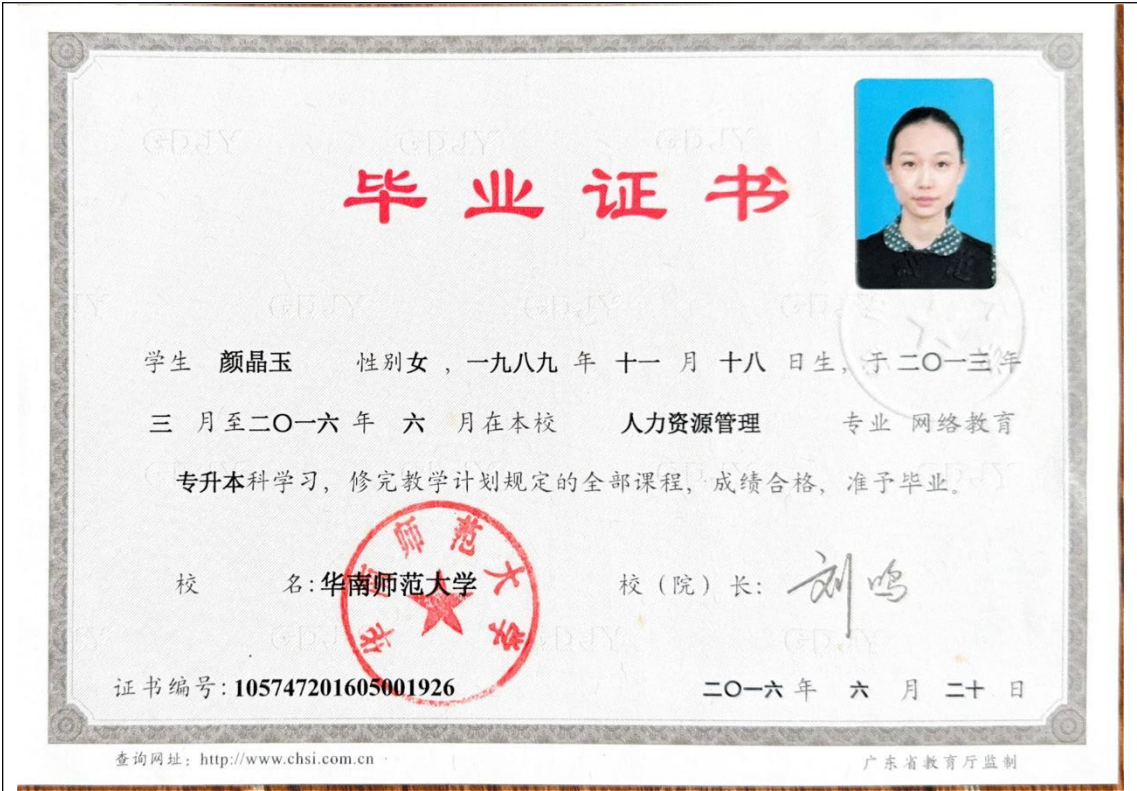 毕业证书
学生 颜晶玉 性别女，一九八九 年 十一 月 十八 日生，于二〇一三年
三 月至二〇一六 年 六 月在本校 人力资源管理 专业 网络教育
专升本科学习，修完教学计划规定的全部课程，成绩合格，准予毕业。
华南师范大学
校 名：华南师范大学 校（院）长： 刘鸣
证书编号：105747201605001926 二〇一六 年 六 月 二十 日
查询网址：http://www.chsi.com.cn 广东省教育厅监制
GDJY GDJY GDJY